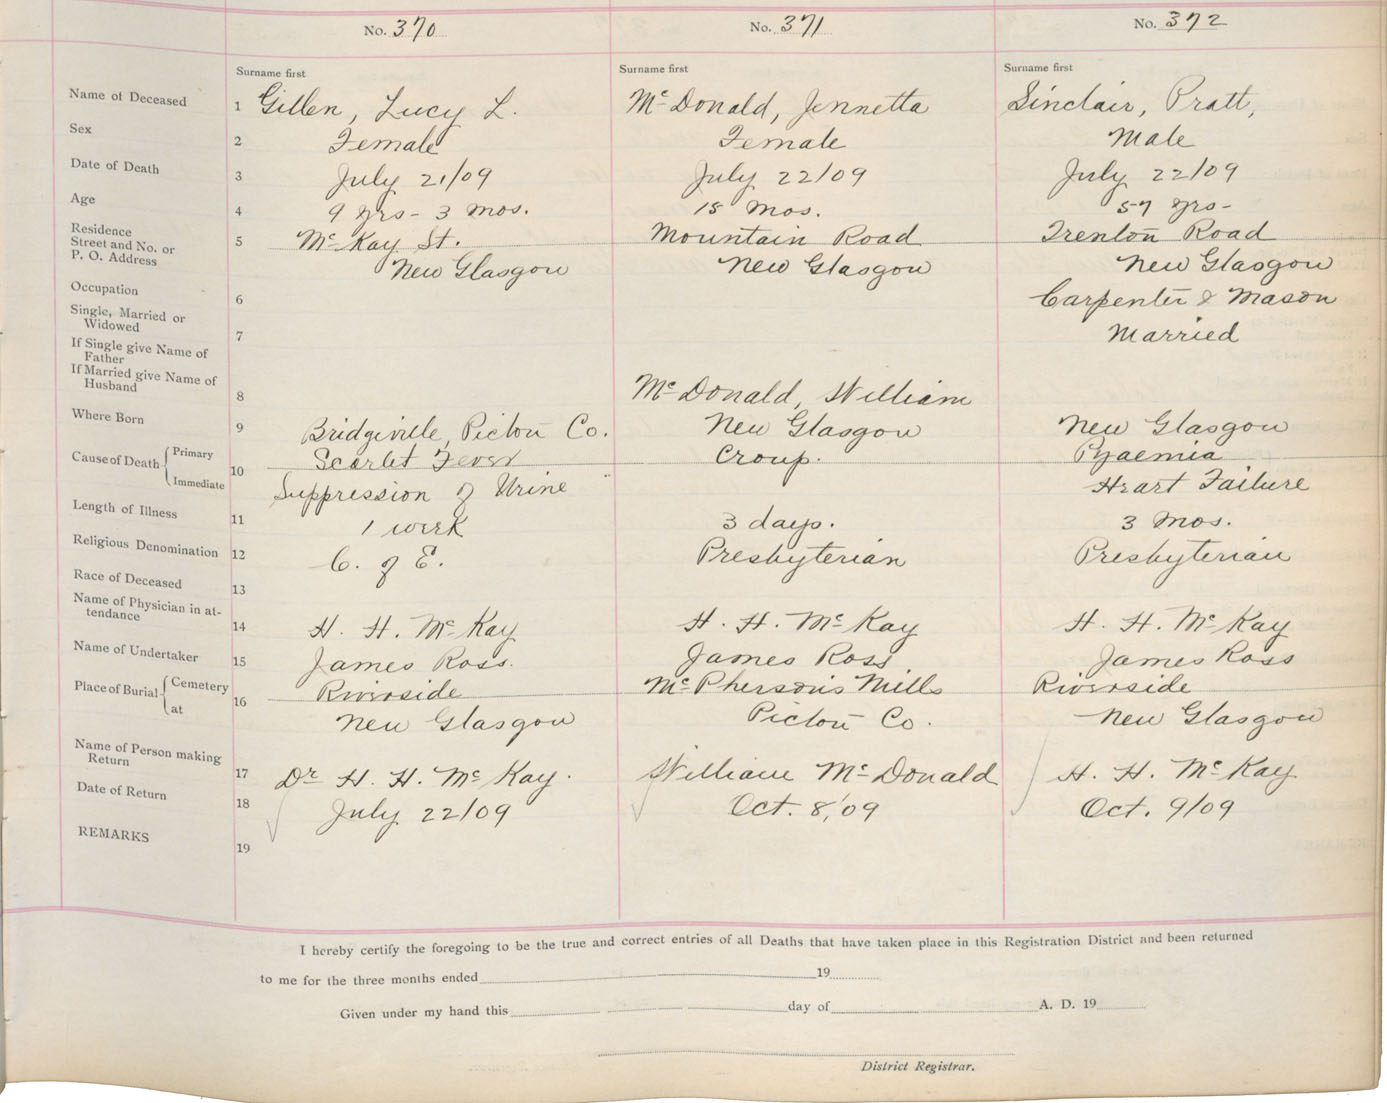 No. 370
No. 371
No. 372
Surname first
Surname first
Surname first
Name of Deceased 1 Gillen, Lucy L. Mc Donald, Jennetta Sinclair, Pratt,
Sex 2 Female Female Male
Date of Death 3 July 21/09 July 22/09 July 22/09
Age 4 9 yrs - 3 mos. 15 mos. 57 yrs -
Residence
Street and No. or 5 Mc Kay St. Mountain Road Trenton Road
P. O. Address New Glasgow New Glasgow New Glasgow
Occupation 6 Carpenter & Mason
Single, Married or
Widowed 7 Married
If Single give Name of
Father
If Married give Name of
Husband 8 Mc Donald, William
Where Born 9 Bridgeville, Pictou Co. New Glasgow New Glasgow
Cause of Death Primary 10 Scarlet Fever Croup. Pyaemia
Immediate Suppression of Urine Heart Failure
Length of Illness 11 1 week 3 days. 3 mos.
Religious Denomination 12 C. of E. Presbyterian Presbyterian
Race of Deceased 13
Name of Physician in at-
tendance 14 H. H. Mc Kay H. H. Mc Kay H. H. Mc Kay
Name of Undertaker 15 James Ross. James Ross James Ross
Place of Burial Cemetery 16 Riverside Mc Pherson's Mills Riverside
at New Glasgow Pictou Co. New Glasgow
Name of Person making
Return 17 Dr H. H. Mc Kay. William Mc Donald H. H. Mc Kay
Date of Return 18 July 22/09 Oct. 8, '09 Oct. 9/09
REMARKS 19
I hereby certify the foregoing to be the true and correct entries of all Deaths that have taken place in this Registration District and been returned
to me for the three months ended 19
Given under my hand this day of A. D. 19
District Registrar.